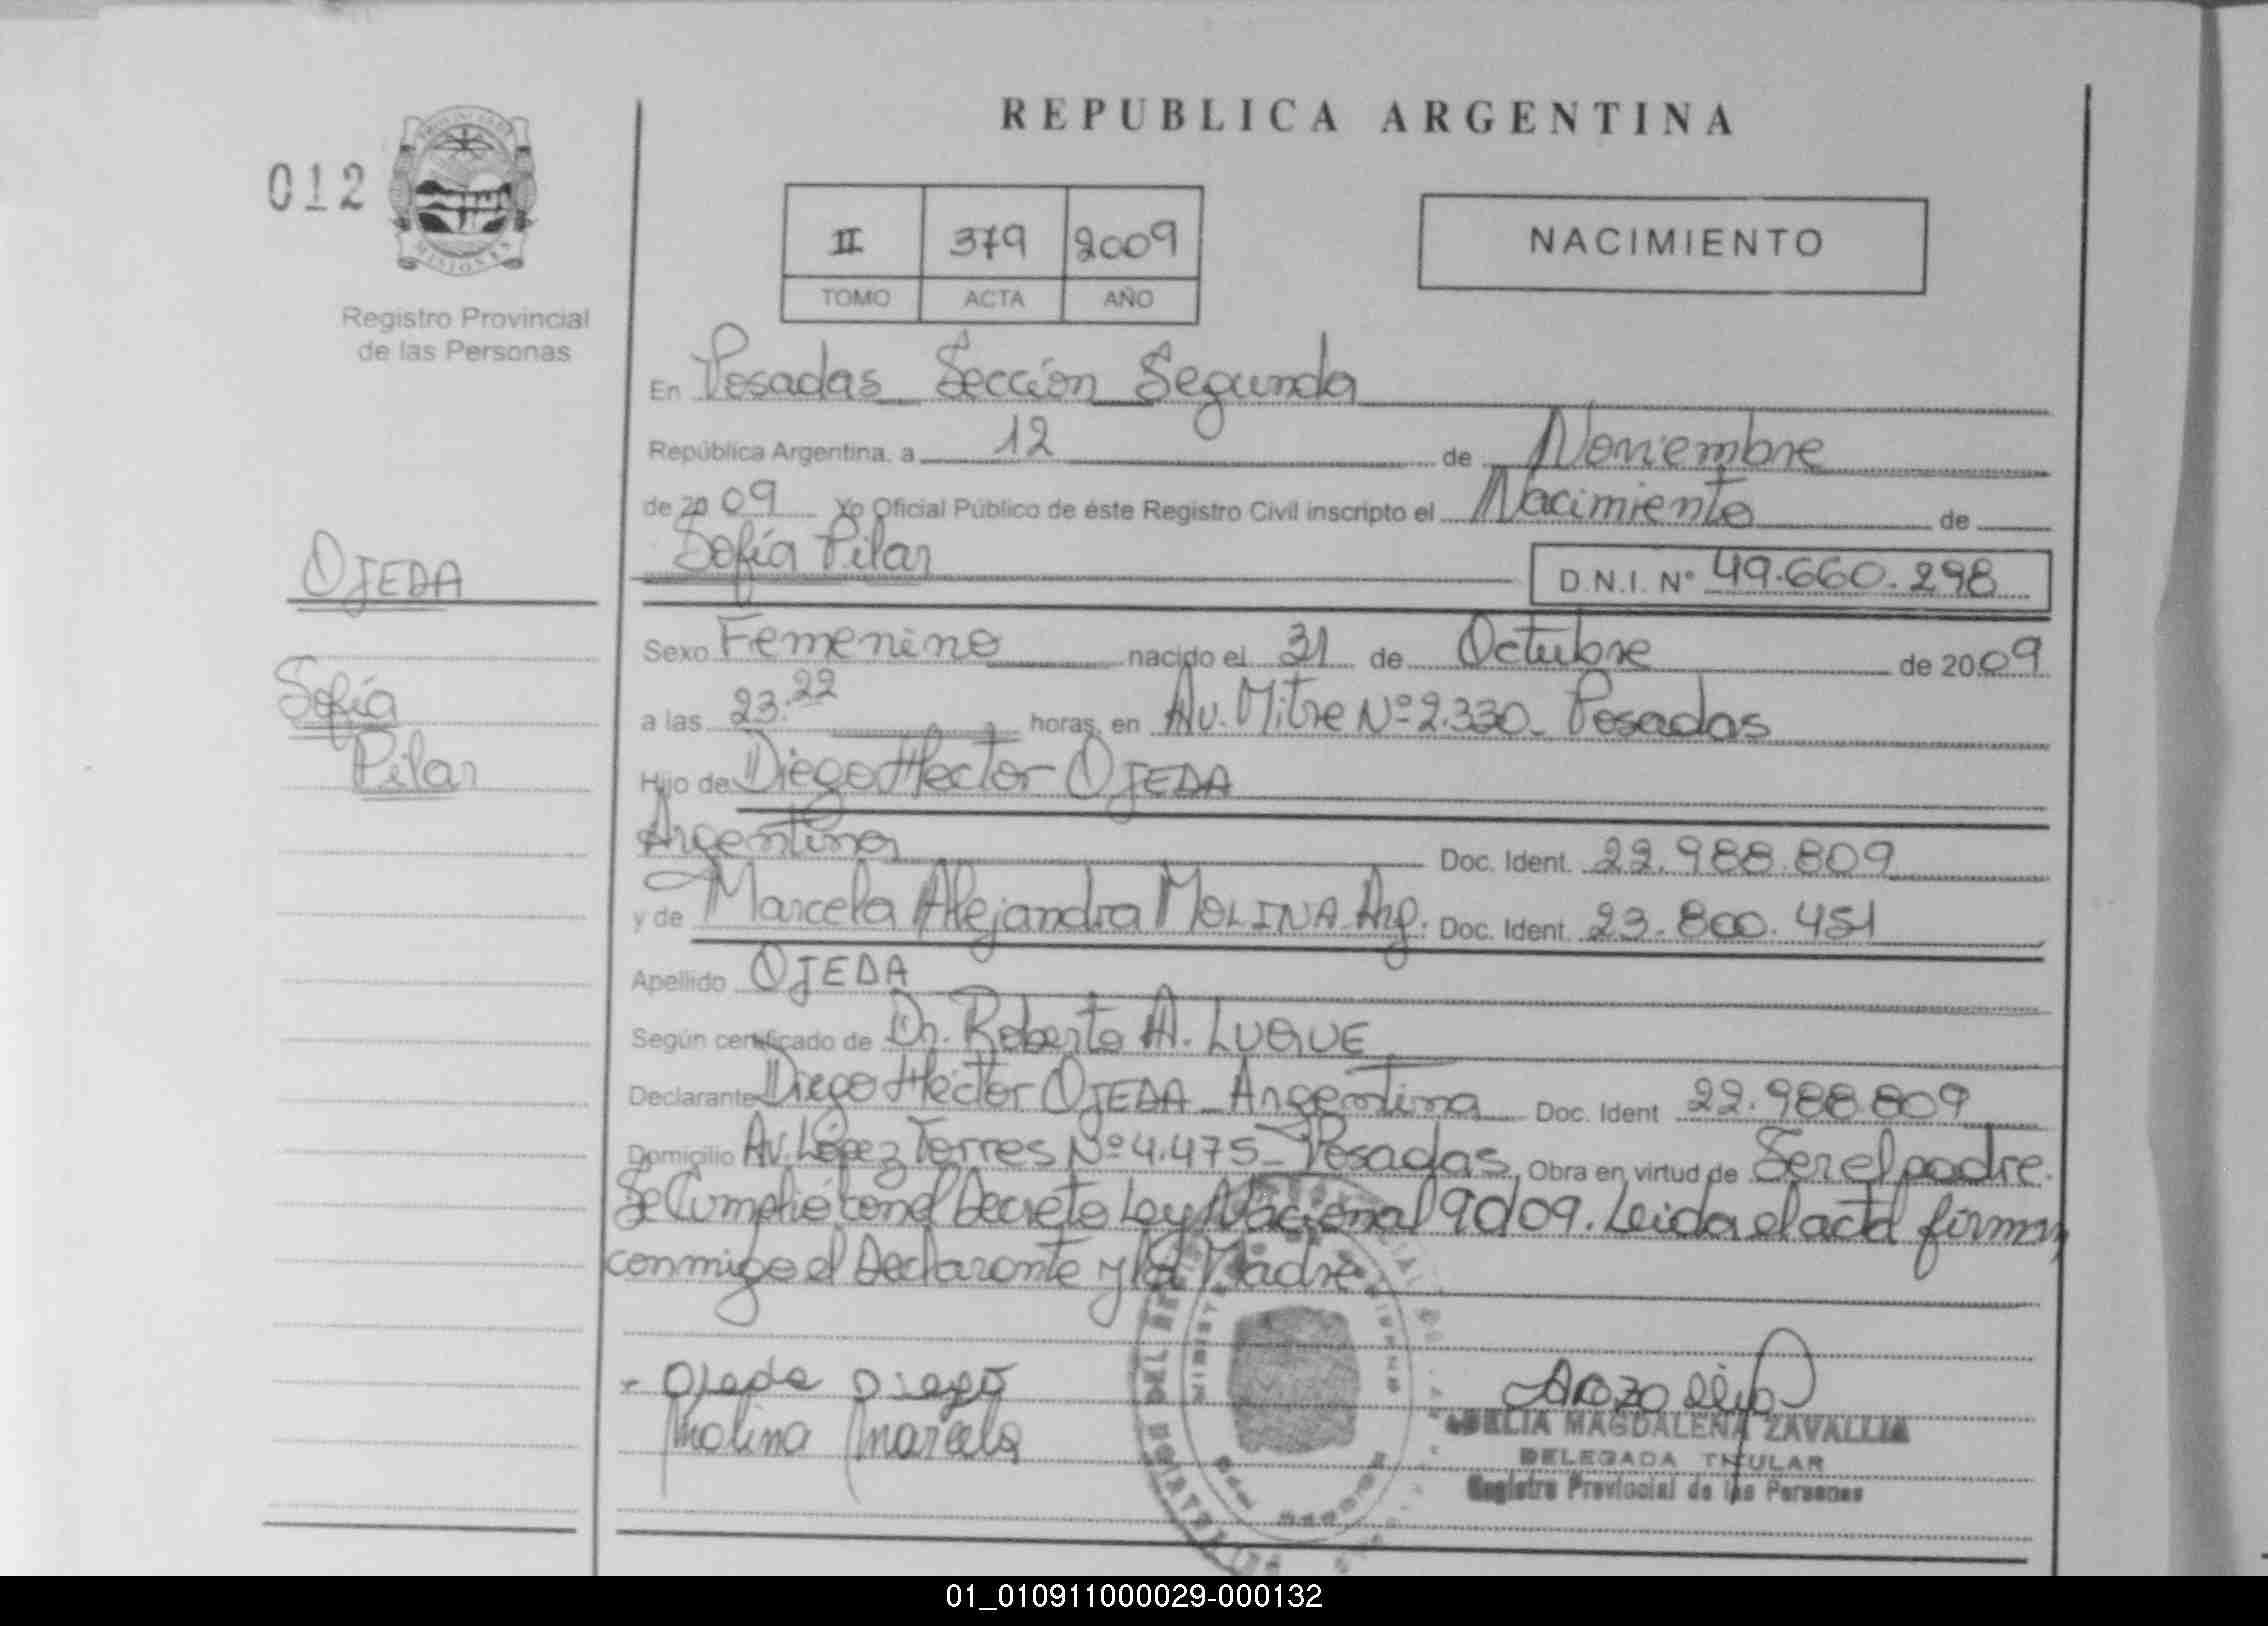 REPUBLICA ARGENTINA
012
PROVINCIA DE
MISIONES
Registro Provincial
de las Personas
II 379 2009
TOMO ACTA AÑO
NACIMIENTO
En Posadas Sección Segunda
República Argentina, a 12 de Noviembre
de 20 09 Yo Oficial Público de éste Registro Civil inscripto el Nacimiento de
Sofía Pilar D.N.I. Nº 49.660.298
OJEDA
Sofía
Pilar
Sexo Femenino nacido el 31 de Octubre de 20 09
a las 23:22 horas, en Av. Mitre Nº 2.330 - Posadas
Hijo de Diego Hector OJEDA
Argentina Doc. Ident. 22.988.809
y de Marcela Alejandra MOLINA Arg. Doc. Ident. 23.800.451
Apellido OJEDA
Según certificado de Dr. Roberto A. LUQUE
Declarante Diego Hector OJEDA - Argentina Doc. Ident 22.988.809
Domicilio Av. López Torres Nº 4.475 - Posadas Obra en virtud de Ser el padre.
Se Cumplió con el Decreto Ley Nacional 9009. Leida el acta firman
conmigo el Declarante y la Madre
Ojeda Diego
Molina Marcela
DELIA MAGDALENA ZAVALLIA
DELEGADA TITULAR
Registro Provincial de las Personas
01_010911000029-000132